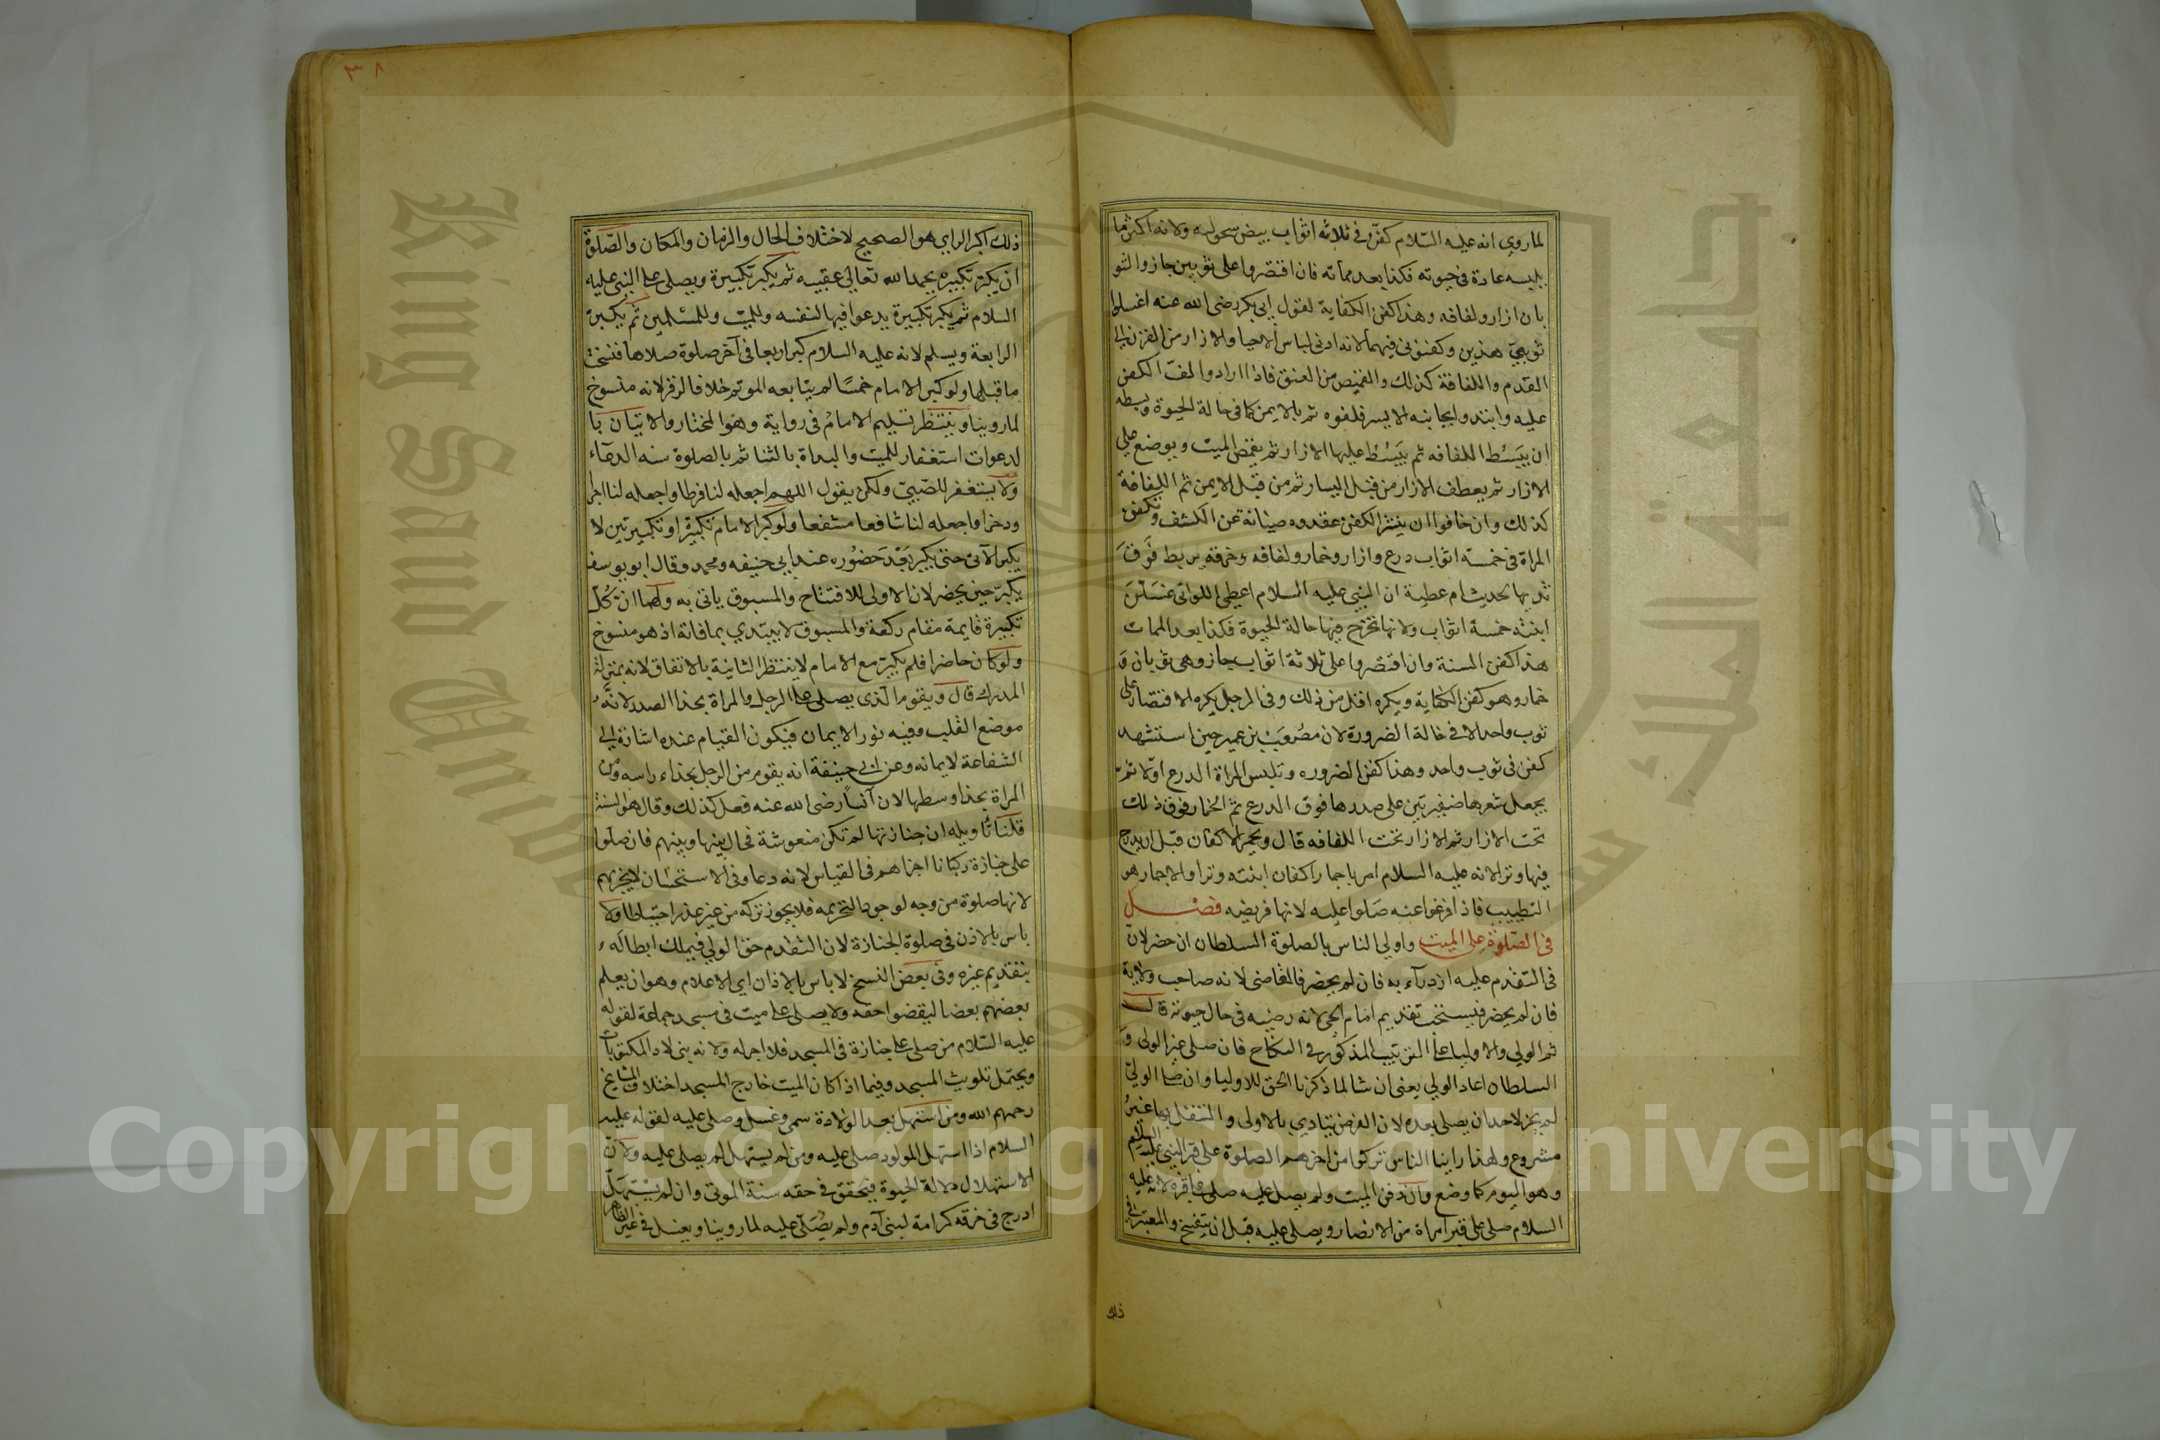 لماروي انه عليه السّلام كفّن في ثلاثه اثواب بيض سحوليه ولانه اكثر ما
يلبسه عادة في حيوته فكذا بعد مماته فان اقتصروا على ثوبين جاز والثو
بان ازار ولفافه وهذا كفن الكفاية لقول ابي بكر رضى الله عنه اغسلوا
ثوبيّ هذين وكفنوني فيهما لانه ادنى لباس الاحيا والازار من القرن الي
القدم واللفافة كذلك والقميص من العنق فاذا ارادوا لفّ الكفن
عليه وابتدوا بجانبه الايسر فلفوه ثم بالايمن كما في حالة الحيوة وبسطه
ان يبسُط اللفافه ثم يبسُط عليها الازار ثم يقمص الميت ويوضع على
الازار ثم يعطف الازار من قبل اليسار ثم من قبل الايمن ثم اللفافة
كذلك وان خافوا ان ينتشر الكفن عقدوه صيانة عن الكشف وتكفن
المراة في خمسة اثواب درع وازار وخمار ولفافه وخرقه يربط فوقَ
ثديها لحديث ام عطية ان النبي عليه السلام اعطى اللواتي غسلن
ابنته خمسة اثواب ولانها تخرج فيها حالة الحيوة فكذا بعد الممات
هذا كفن السنة وان اقتصروا على ثلاثة اثواب جاز وهي ثوبان وَ
خمار وهو كفن الكفاية ويكره اقل من ذلك وفي الرجل يكره الاقتصار على
ثوب واحد الا في حالة الضرورة لان مصعب بن عمير حين استشهد
كفن في ثوب واحد وهذا كفن الضروره وتلبس المراة الدرع اوّلا ثم
يجعل شعرها ضفيرتين على صدرها فوق الدرع ثم الخمار فوق ذلك
تحت الازار ثم الازار تحت اللفافه قال ويجمر الاكفان قبل ان يدرج
فيها وترا لانه عليه السلام امر باجمار اكفان ابنته وترا والاجمار هو
التطييب فاذا فرغوا عنه صَلوا عليه لانها فريضه فصل
في الصّلوة على الميت واولي الناس بالصلوة السلطان ان حضر لانّ
في التقدم عليه ازدرآء به فان لم يحضر فالقاضى لانه صاحب ولاية
فان لم يحضر فيستحب تقديم امام الحي لانه رضيه في حال حيوته قال
ثم الولي والاوليا على الترتيب المذكور في النكاح فان صلى غير الولى وَ
السلطان اعاد الولي يعني ان شا لما ذكرنا الحق للاوليا وان صلى الولى
لم يجز لاحد ان يصلى بعده لان الفرض يتادي بالاولى والتنفل بها غيرُ
مشروع ولهذا راينا الناس تركوا من اخرهم الصلوة على قبر النبي عليه السلام
وهو اليوم كما وضع وان دفن الميت ولم يصل عليه صلى على قبره لانه عليه
السلام صلى على قبر امراة من الانصار ويصلى عليه قبل ان يتفسخ والمعتبر في
ذلك
٣٨
ذلك اكبر الراي هو الصحيح لاختلاف الحال والزمان والمكان والصّلوة
ان يكبّر تكبيره يحمد الله تعالى عقيبه ثم يكبر تكبيرة ويصلى على النبي عليه
السلام ثم يكبر تكبيرة يدعوا فيها لنفسه وللميت وللمسلمين ثم يكبر
الرابعة ويسلم لانه عليه السلام كبر اربعا في آخر صلوة صلاها فنسخت
ما قبلها ولو كبر الامام خمسًا لم يتابعه الموتم خلافا لزفر لانه منسوخ
لما روينا وينتظر تسليم الامام في رواية وهو المختار والاتيان با
لدعوات استغفار للميت والبداة بالثنا ثم بالصلوة سنه الدعآء
ولا يستغفر للصّبيّ ولكن يقول اللهم اجعله لنا فرطا واجعله لنا اجرا
وذخرا واجعله لنا شافعا مشفعا ولو كبر الامام تكبيرة او تكبيرتين لا
يكبر الآتي حتى يكبر بعد حضوره عند ابي حنيفه ومحمد وقال ابو يوسف
يكبر حين يحضر لان الاولى للافتتاح والمسبوق ياتى به ولهما ان كُلّ
تكبيرة قايمة مقام ركعة والمسبوق لا يبتدي بما فاته اذ هو منسوخ
ولو كان حاضرا فلم يكبر مع الامام لا ينتظر الثانية بالاتفاق لانه بمنزلة
المدرك قال ويقوم الذي يصلى على الرجل والمراة بحذا الصدر لانّه
موضع القلب وفيه نور الايمان فيكون القيام عنده اشارة الي
الشفاعة لايمانه وعن ابي حنيفة انه يقوم من الرجل بحذاء راسه ومن
المراة بحذا وسطها لان آنسًا رضى الله عنه فعل كذلك وقال هو السنة
قلنا تاويله ان جنازتها لم تكن منعوشة فحال بينها وبينهم فان صلوا
على جنازة ركبانا اجزاهم في القياس لانه دعا وفي الاستحسان لا يجزيهم
لانها صلوة من وجه لوجود التحريمه فلا يجوز تركه من غير عذر احتياطا ولا
باس بالاذن في صلوة الجنازة لان التقدم حق الولي فيملك ابطاله
بتقديم غيره وفي بعض النسخ لا باس بالاذان اى الاعلام وهو ان يعلم
بعضهم بعضا ليقضوا حقه ولا يصلى على ميت في مسجد جماعة لقوله
عليه السّلام من صلى على جنازة في المسجد فلا اجر له ولانه بنى لاداء المكتوبات
ويحتمل تلويث المسجد وفيما اذا كان الميت خارج المسجد اختلاف المشايخ
رحمهم الله ومن استهل بعد الولادة سمى وغسل وصلى عليه لقوله عليه
السلام اذا استهل المولود صلى عليه ومن لم يستهل لم يصلى عليه ولانّ
الاستهلال دلالة الحيوة فيتحقق في حقه سنة الموتى وان لم يستهلّ
ادرج في خرقه كرامة لبنى آدم ولم يُصَلّ عليه لما روينا ويغسل في غير الظاهر
King Saud University
جامعة الملك سعود
Copyright © King Saud University